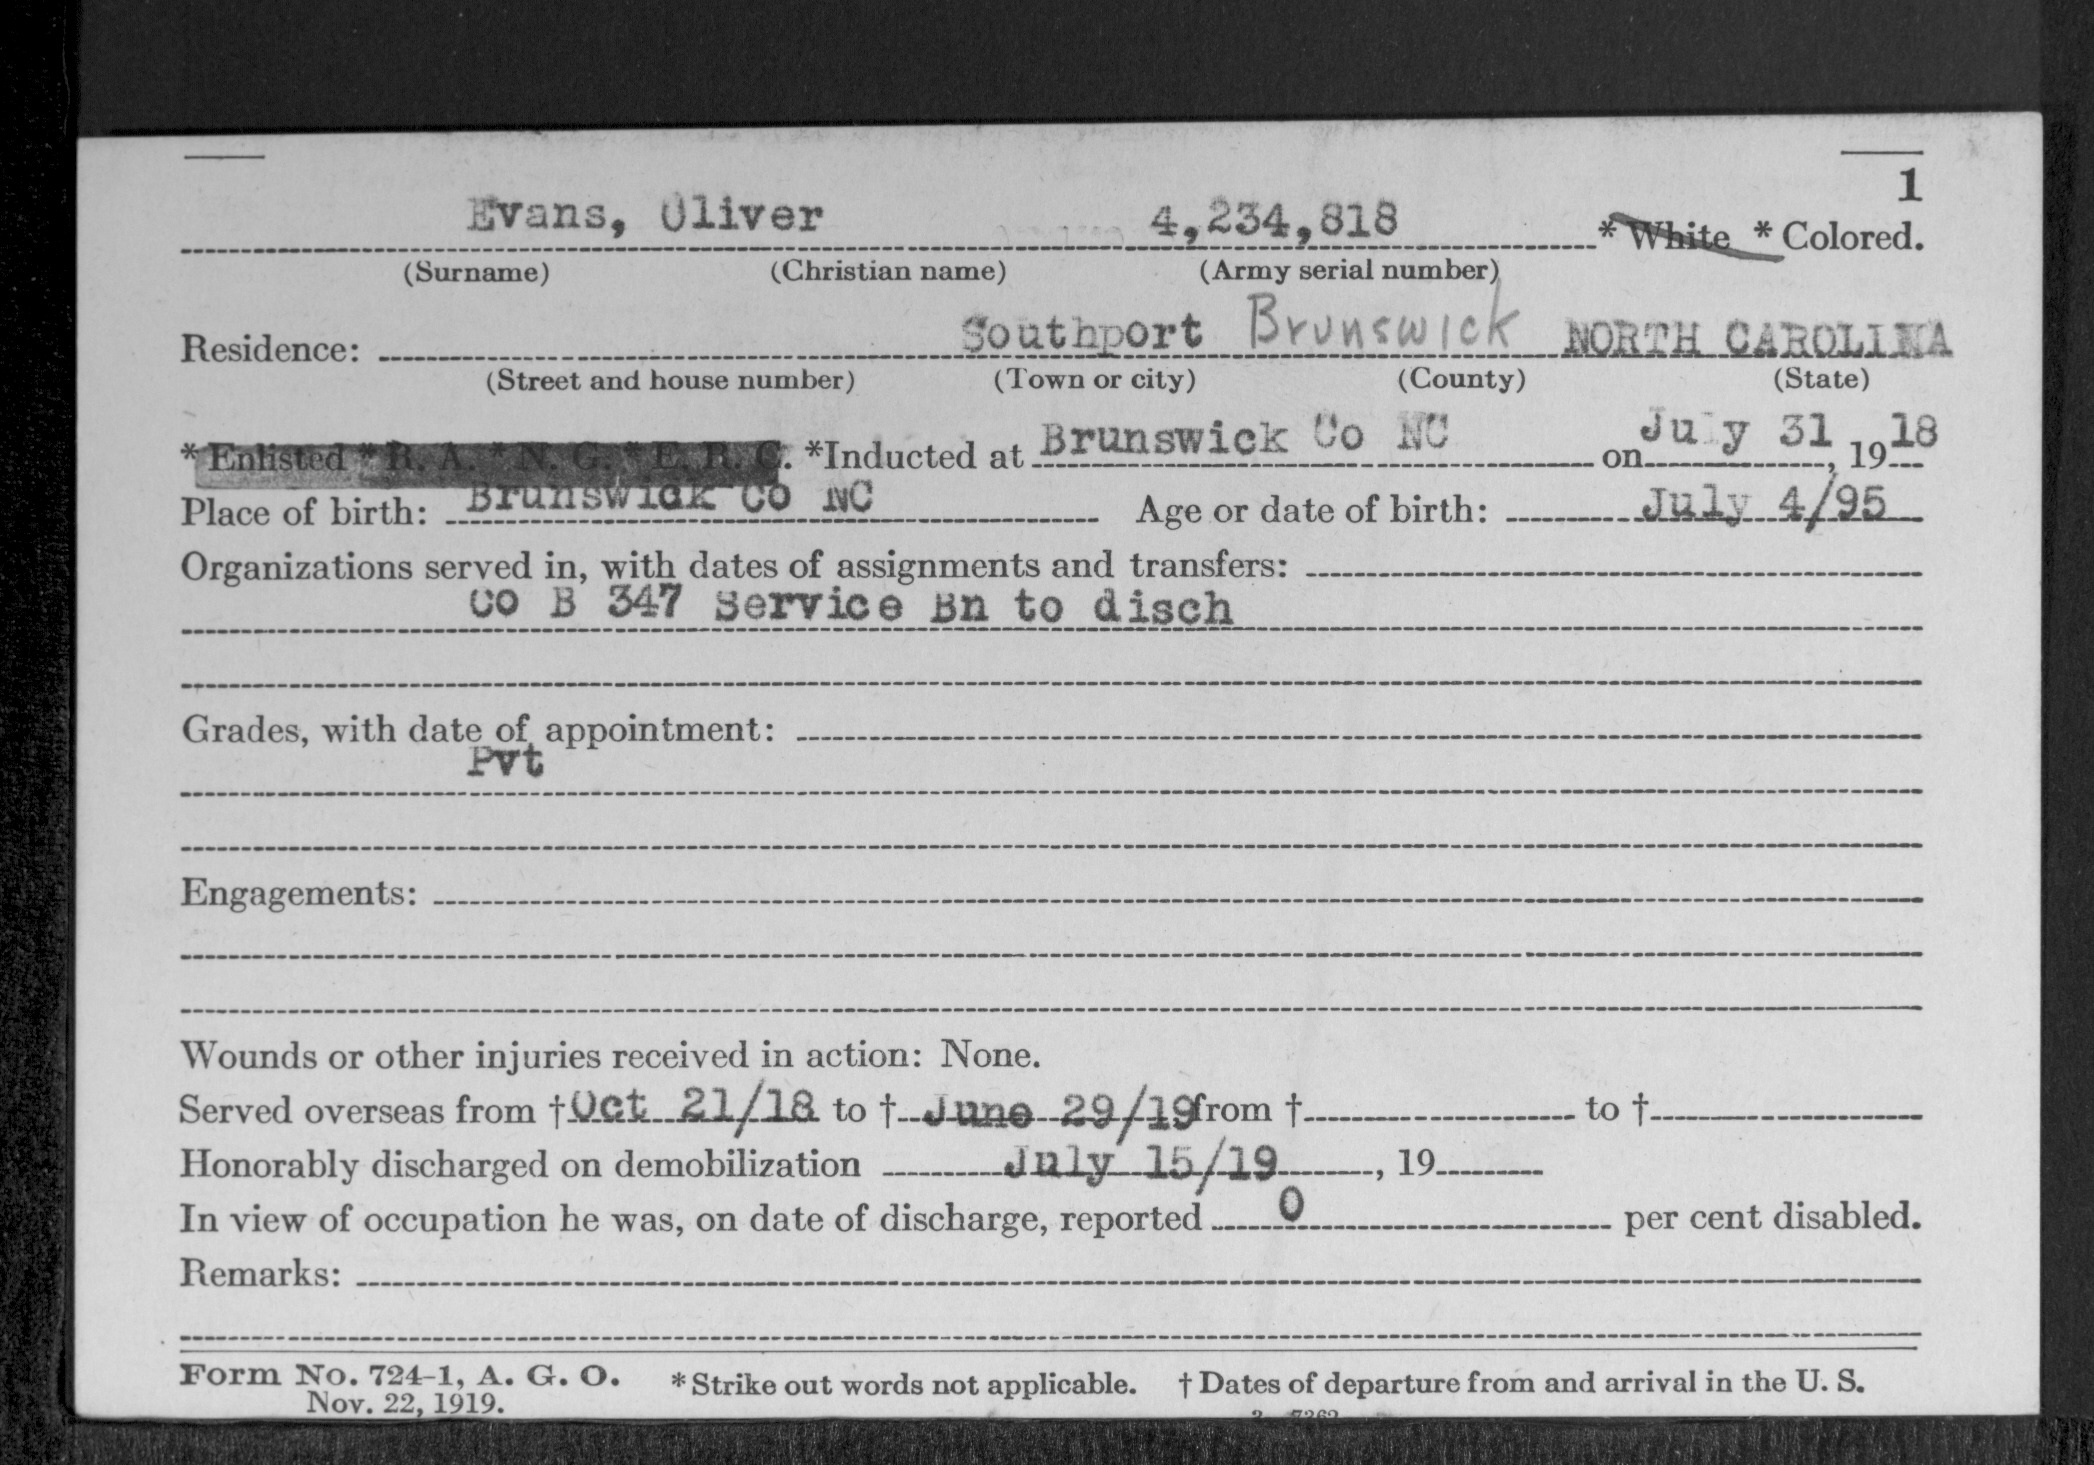 1
Evans, Oliver 4,234,818 * White * Colored.
(Surname) (Christian name) (Army serial number)
Residence: Southport Brunswick NORTH CAROLINA
(Street and house number) (Town or city) (County) (State)
* Enlisted * R. A. * N. G. * E. R. C. *Inducted at Brunswick Co NC on July 31, 1918
Place of birth: Brunswick Co NC Age or date of birth: July 4/95
Organizations served in, with dates of assignments and transfers:
Co B 347 Service Bn to disch
Grades, with date of appointment:
Pvt
Engagements:
Wounds or other injuries received in action: None.
Served overseas from † Oct 21/18 to † June 29/19 from † to †
Honorably discharged on demobilization July 15/19, 19
In view of occupation he was, on date of discharge, reported 0 per cent disabled.
Remarks:
Form No. 724-1, A. G. O. * Strike out words not applicable. † Dates of departure from and arrival in the U. S.
Nov. 22, 1919.